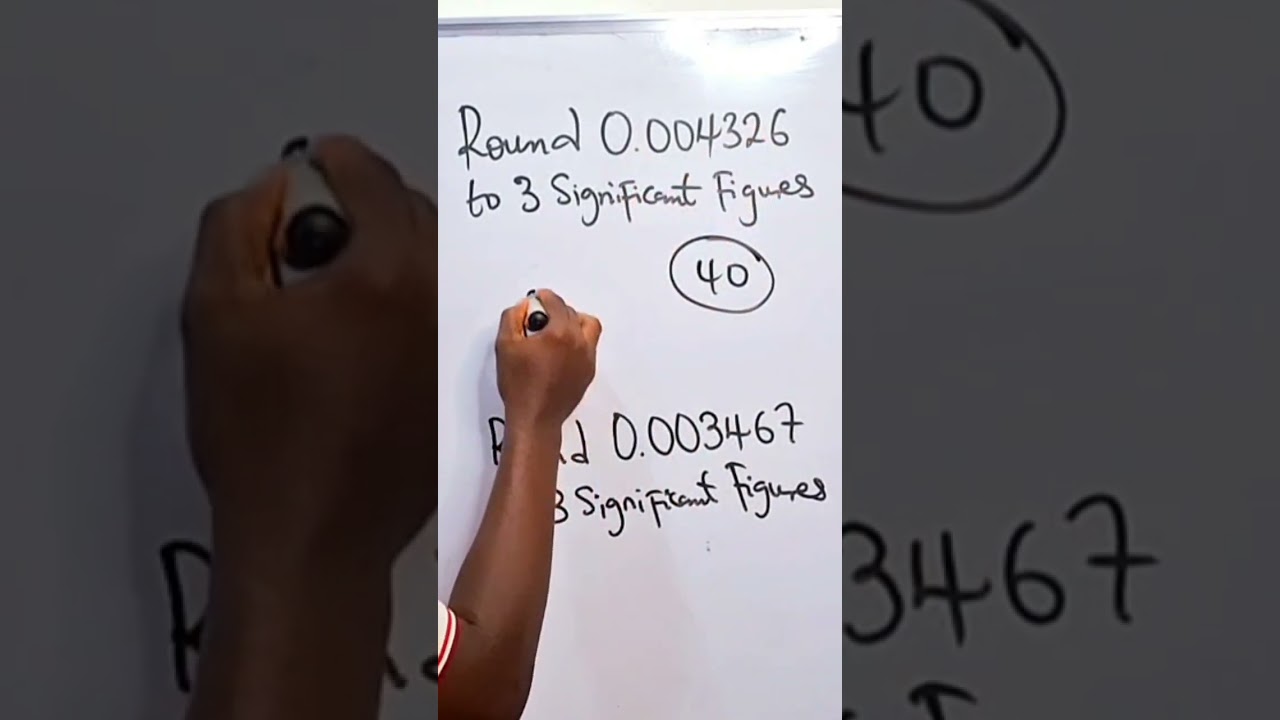 Round 0.004326
to 3 Significant Figures
40
0.003467
3 Significant Figures